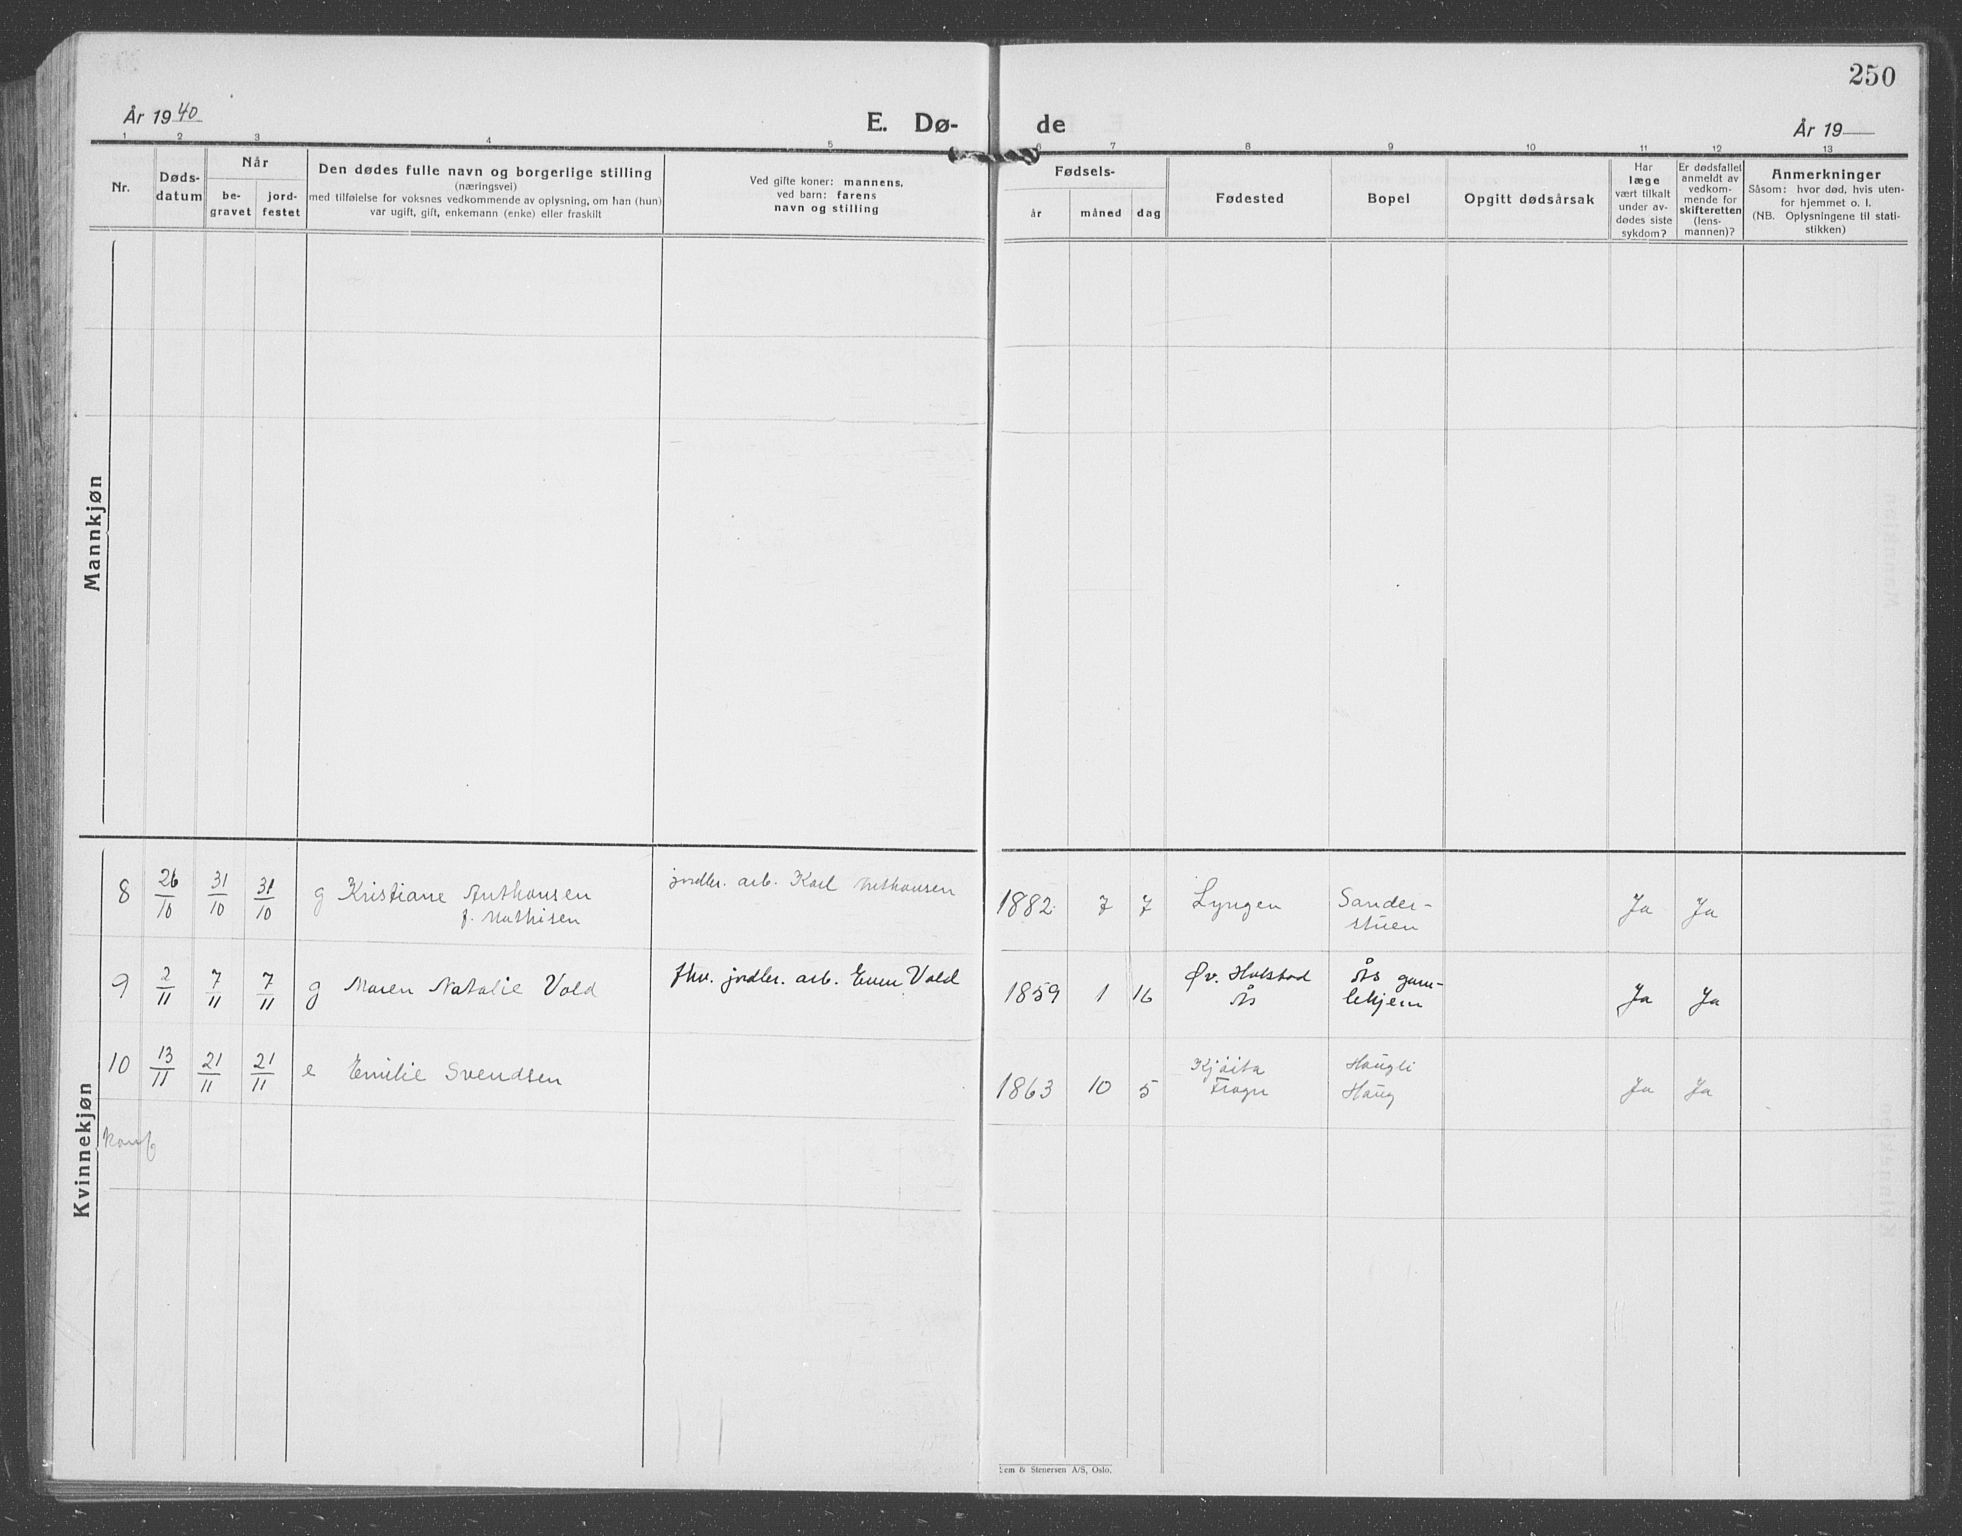 250
År 1940
E. Dø-
de
År 19
1 2 3 4 5 6 7 8 9 10 11 12 13
Nr.
Døds-
datum
Når
be-
gravet
jord-
festet
Den dødes fulle navn og borgerlige stilling
(næringsvei)
med tilføielse for voksnes vedkommende av oplysning, om han (hun)
var ugift, gift, enkemann (enke) eller fraskilt
Ved gifte koner: mannens,
ved barn: farens
navn og stilling
Fødsels-
år
måned
dag
Fødested
Bopel
Opgitt dødsårsak
Har
læge
vært tilkalt
under av-
dødes siste
sykdom?
Er dødsfallet
anmeldt av
vedkom-
mende for
skifteretten
(lens-
mannen)?
Anmerkninger
Såsom: hvor død, hvis uten-
for hjemmet o. l.
(NB. Oplysningene til stati-
stikken)
Mannkjøn
Kvinnekjøn
8 26/10 31/10 31/10 g Kristiane Anthonsen jordbr. arb. Karl Anthonsen 1882 7 7 Lyngen Sander- Ja Ja
f. Mathisen stuen
9 2/11 7/11 7/11 g Maren Natalie Vold fhv. jordbr. arb. Even Vold 1859 1 16 Øv. Holstad Ås gam- Ja Ja
Ås lehjem
10 13/11 21/11 21/11 e Emilie Svendsen 1863 10 5 Haugli Ja Ja
Frogn Haug
Konf
Sem & Stenersen A/S, Oslo.